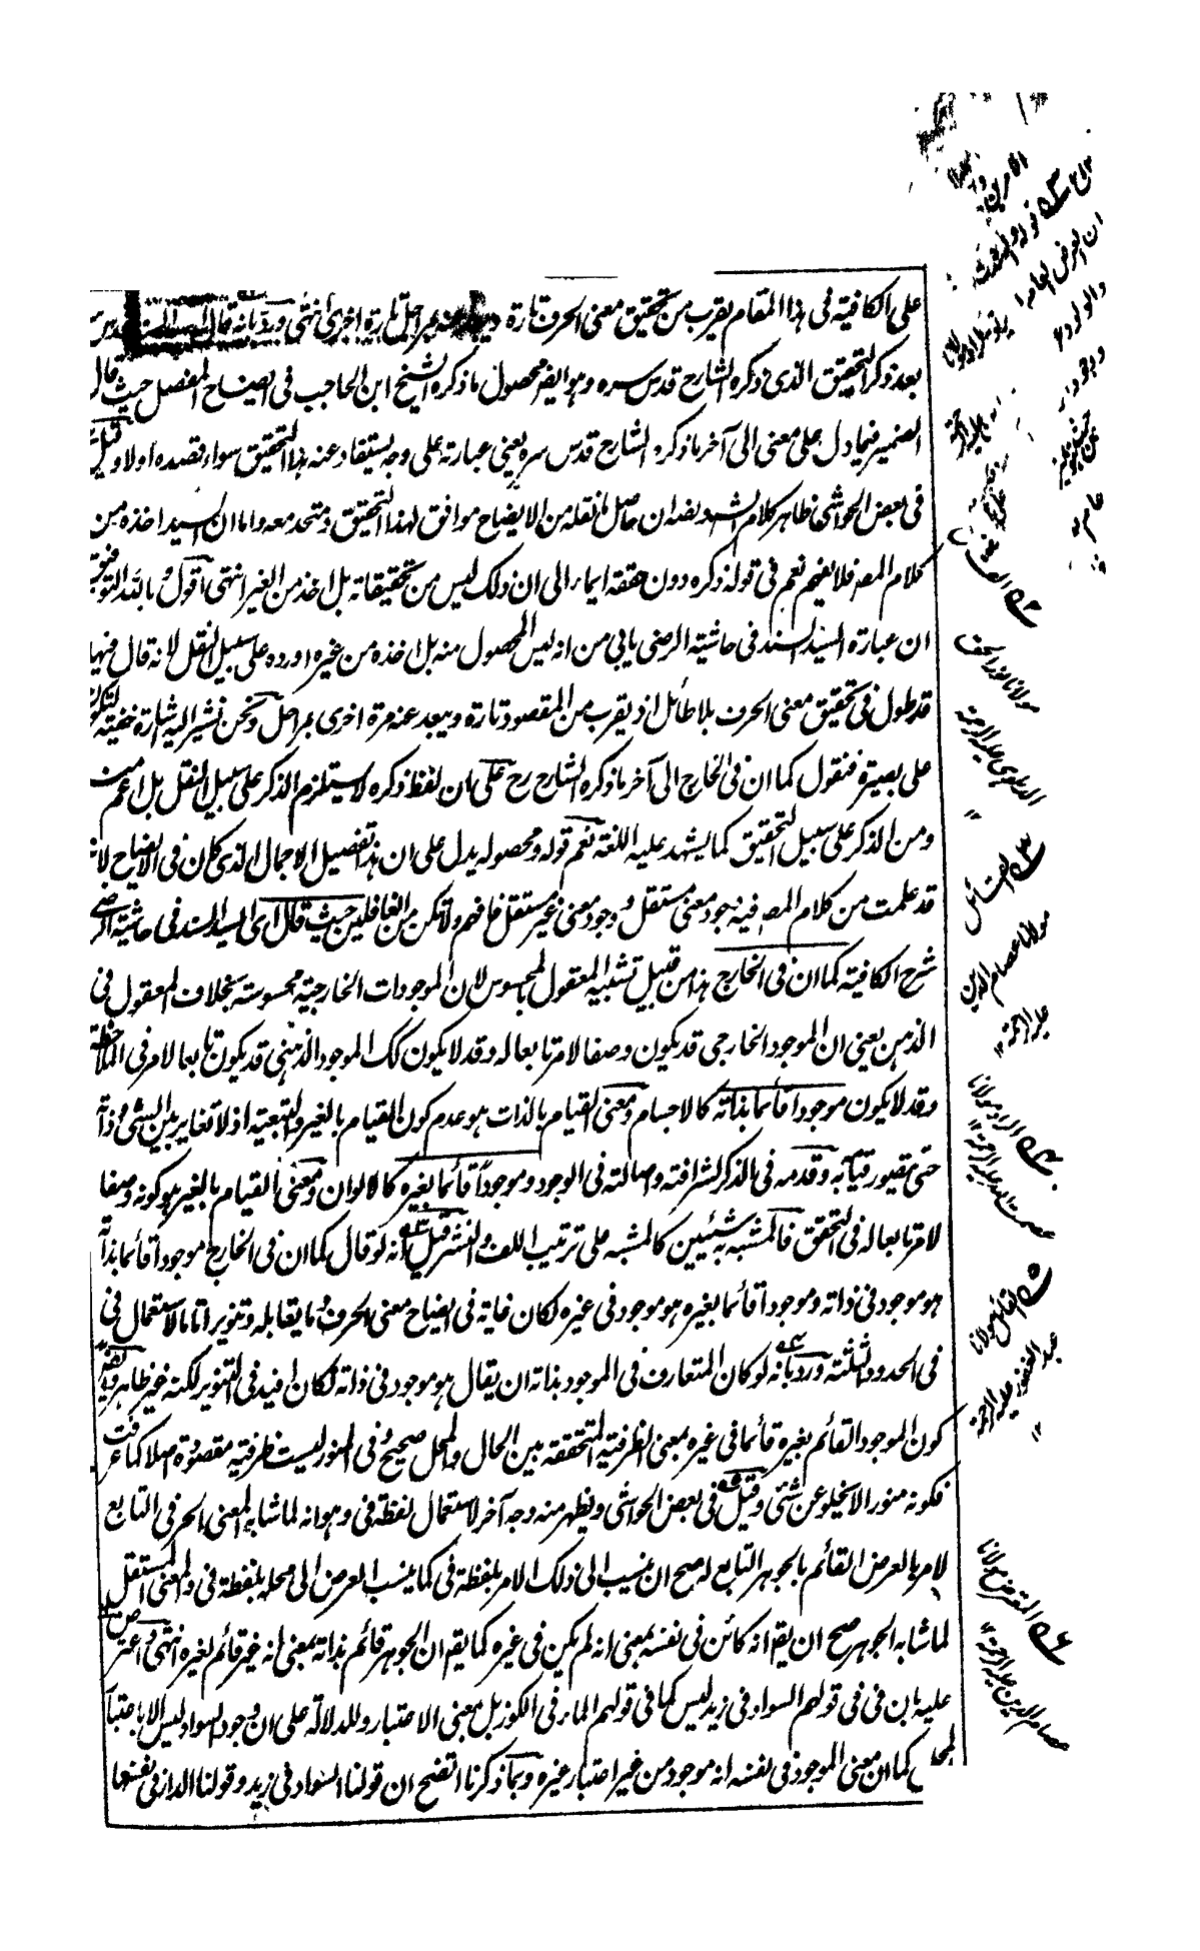 على الكافية فى هذا المقام يقرب من تحقيق معنى الحرف تارة ويبعد عنه بمراحل تارة اخرى انتهى ورد بانه قال
بعد ذكر التحقيق الذى ذكره الشارح قدس سره وهو ايضا محصول ما ذكره الشيخ ابن الحاجب فى ايضاح المفصل حيث قال
الضمير فيما دل على معنى الى آخر ما ذكره الشارح قدس سره يعنى عبارته على وجه يستفاد عنه هذا التحقيق سواء قصده اولا وقيل
فى بعض الحواشى ظاهر كلام الش ان حاصل ما نقله من الايضاح موافق لهذا التحقيق ومتحد معه واما ان السيد اخذه من
كلام المص فلا يفهم نعم فى قوله ذكره دون حققه ايماء الى ان ذلك ليس من تحقيقاته بل اخذ من الغير انتهى اقول وبالله التوفيق
ان عبارة السيد السند فى حاشية الرضى يابى من انه ليس المحصول منه بل اخذه من غيره اورده على سبيل النقل لانه قال فيها
قد طول فى تحقيق معنى الحرف بلا طائل اذ يقرب من المقصود تارة ويبعد عنه مرة اخرى بمراحل ونحن نشير اليه اشارة خفية لتكون
على بصيرة فنقول كما ان فى الخارج الى آخر ما ذكره الشارح رح على ان لفظ ذكره لا يستلزم الذكر على سبيل النقل بل اعم منه
ومن الذكر على سبيل التحقيق كما يشهد عليه اللغة نعم قوله ومحصوله يدل على ان هذا تفصيل الاجمال الذى كان فى الايضاح لانه
قد علمت من كلام المص فيه وجود معنى مستقل ووجود معنى غير مستقل فافهم ولا تكن من الغافلين حيث قال اى السيد السند فى حاشية الرضى
شرح الكافية كما ان فى الخارج هذا من قبيل تشبيه المعقول بالمحسوس لان الموجودات الخارجية محسوسة بخلاف المعقول فى
الذهن يعنى ان الموجود الخارجى قد يكون وصفا لامر تابعا له وقد لا يكون كك الموجود الذهنى قد يكون تابعا لامر فى الملاحظة
وقد لا يكون موجودا قائما بذاته كالاجسام ومعنى القيام بالذات هو عدم كون القيام بالغير والتبعية اذ لا تغاير بين الشئ وذاته
حتى يتصور قيامه به وقدمه فى الذكر لشرافته واصالته فى الوجود وموجودا قائما بغيره كالالوان ومعنى القيام بالغير هو كونه وصفا
لامر تابعا له فى التحقق فالمشبه به شيئين كالمشبه على ترتيب اللف والنشر قيل انه لو قال كما ان فى الخارج موجودا قائما بذاته
هو موجود فى ذاته وموجودا قائما بغيره هو موجود فى غيره لكان غاية فى ايضاح معنى الحرف وما يقابله وتنويرا تاما لاستعمال فى
فى الحدود الثلثة ورد بانه لو كان المتعارف فى الموجود بذاته ان يقال هو موجود فى ذاته لكان افيد فى التنوير لكنه غير ظاهر وايضا
كون الموجود القائم بغيره قائما فى غيره بمعنى الظرفية المتحققة بين الحال والمحل صحيح وفى المنور ليست ظرفية مقصودة اصلا كما عرفت
فكونه منورا لا يخلو عن شئ وقيل فى بعض الحواشى ويظهر منه وجه آخر لاستعمال لفظة فى وهو انه لما شابه المعنى الحرفى التابع
لامر بالعرض القائم بالجوهر التابع له صح ان ينسب الى ذلك الامر بلفظة فى كما ينسب العرض الى محله بلفظة فى والمعنى المستقل
لما شابه الجوهر صح ان يقه انه كائن فى نفسه بمعنى انه لم يكن فى غيره كما يقه ان الجوهر قائم بذاته بمعنى انه غير قائم بغيره انتهى واعترض
عليه بان فى فى قولهم السواد فى زيد ليس كما فى قولهم الماء فى الكوز بل بمعنى الاعتبار وللدلالة على ان وجود السواد ليس الا باعتبار
المحل كما ان معنى الموجود فى نفسه انه موجود من غير اعتبار غيره وبما ذكرنا اتضح ان قولنا السواد فى زيد وقولنا الدار فى نفسها
مولانا نور الحق
الدهلوى عليه الرحمة
٥٣ القائل
مولانا عصام الدين
عليه الرحمة
٥٤ الراد مولانا
عصمت الله عليه الرحمة
٥٥ القائل مولانا
عبد الغفور عليه الرحمة
٥٦ المعترض مولانا
عصام الدين عليه الرحمة